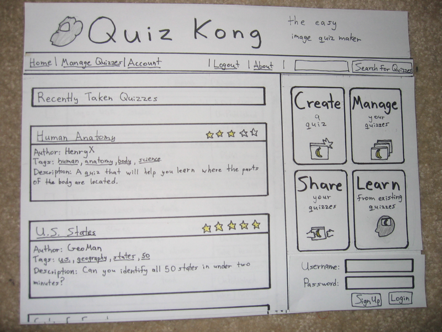 Quiz Kong
the easy
image quiz maker
Home | Manage Quizzes | Account | Logout | About | Search for Quizzes
Recently Taken Quizzes
Human Anatomy
Author: HenryX
Tags: human, anatomy, body, science
Description: A quiz that will help you learn where the parts
of the body are located.
U.S. States
Author: GeoMan
Tags: u.s., geography, states, 50
Description: Can you identify all 50 states in under two
minutes?
Create
a
quiz
Manage
your
quizzes
Share
your
quizzes
Learn
from existing
quizzes
Username:
Password:
Sign Up
Login